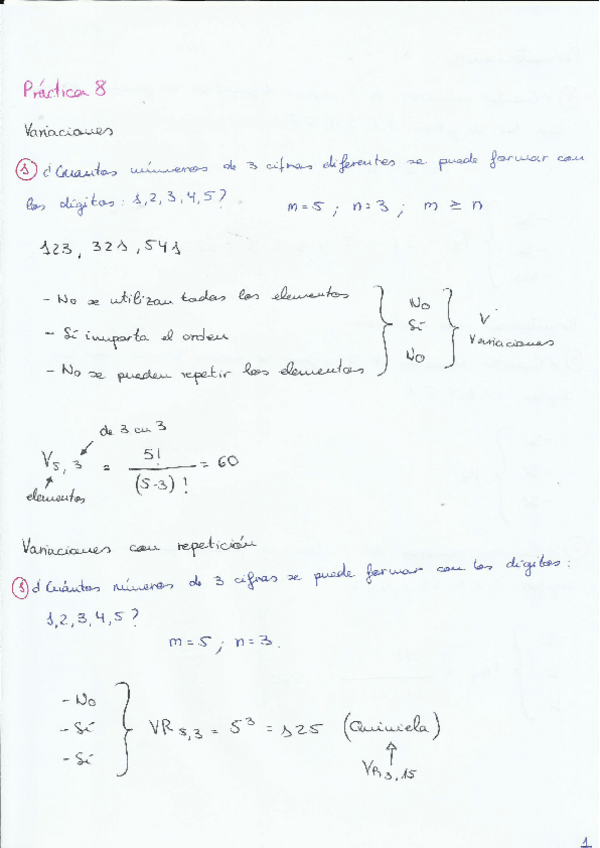 Práctica 8
Variaciones
① ¿Cuántos números de 3 cifras diferentes se puede formar con
los dígitos: 1,2,3,4,5?   m=5 ; n=3 ; m ≥ n
123, 321, 541
- No se utilizan todos los elementos   No
- Sí importa el orden   Sí   V
Variaciones
- No se pueden repetir los elementos   No
de 3 en 3
V5,3 = 5! / (5-3)! = 60
elementos
Variaciones con repetición
① ¿Cuántos números de 3 cifras se puede formar con los dígitos:
1,2,3,4,5?
m=5 ; n=3.
- No
- Sí   VR5,3 = 5³ = 125 (Quiniela)
- Sí
VR3,15
1